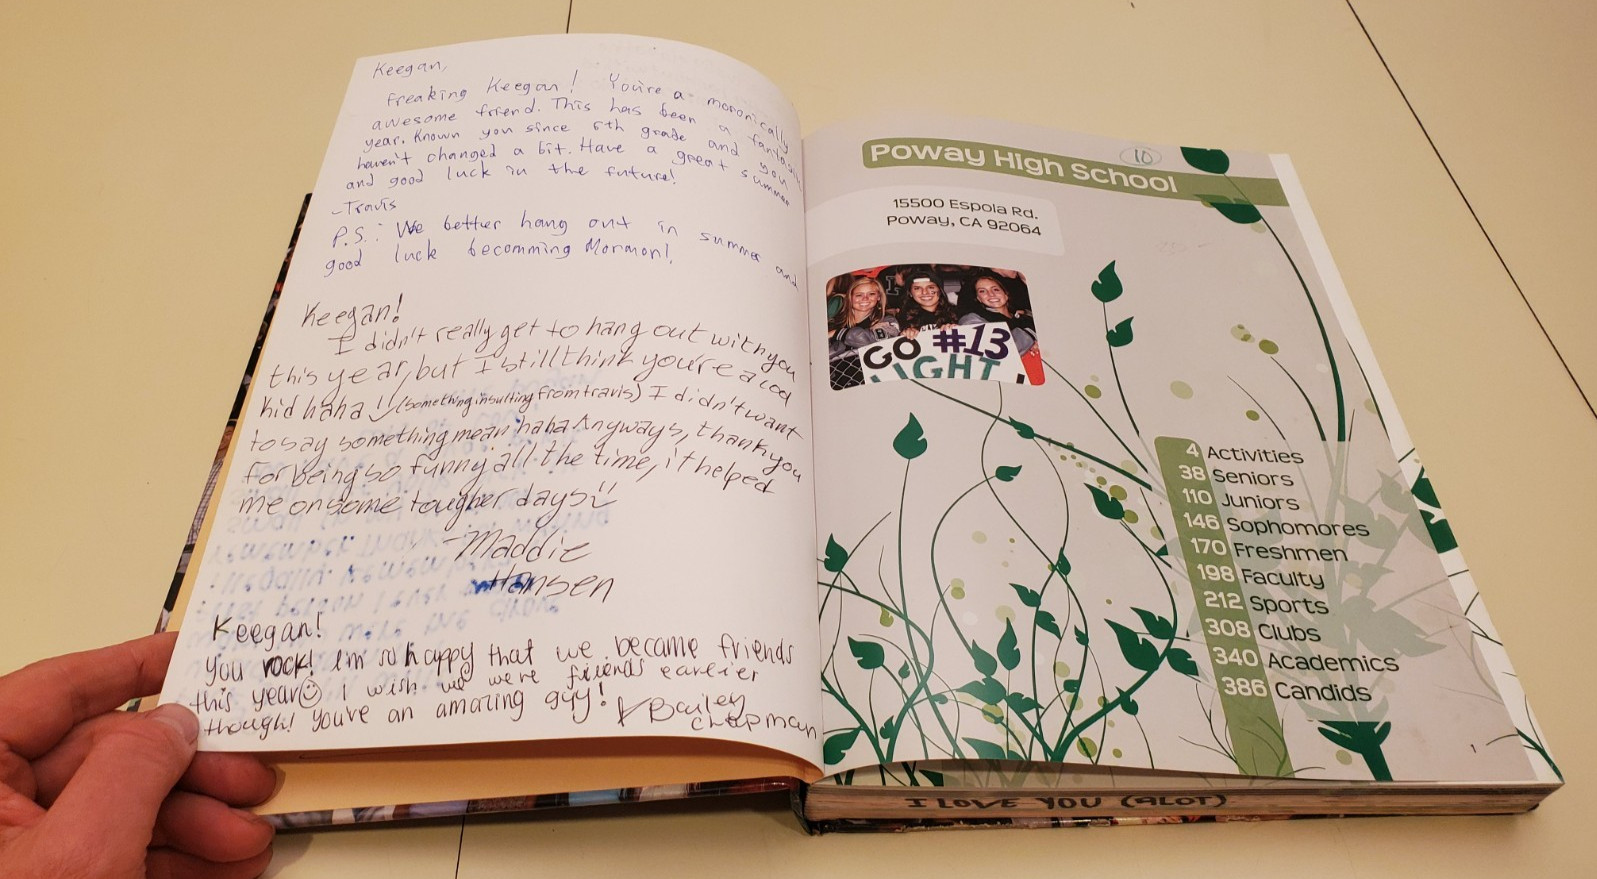 Keegan,
Freaking Keegan! You're a moronically
awesome friend. This has been a fantastic
year. Known you since 6th grade and you
haven't changed a bit. Have a great summer
and good luck in the future!
-Travis
P.S.: We better hang out in summer and
good luck becomming Mormon!
Keegan!
I didn't really get to hang out with you
this year, but I still think you're a cool
kid haha!! (something insulting from travis) I didn't want
to say something mean haha Anyways, thank you
for being so funny all the time, it helped
me on some tougher days
-Maddie
Hansen
Keegan!
You rock! I'm so happy that we became friends
this year I wish we were friends earlier
though! You've an amazing guy!
Bailey
Chapman
Poway High School
10
15500 Espola Rd.
Poway, CA 92064
GO #13
LIGHT
4 Activities
38 Seniors
110 Juniors
146 Sophomores
170 Freshmen
198 Faculty
212 Sports
308 Clubs
340 Academics
386 Candids
I LOVE YOU (ALOT)